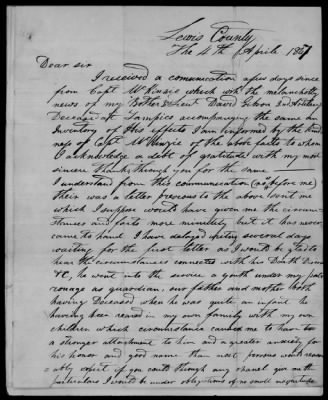 Lewis County
The 4th April 1847
Dear sir
I received a comunication a few days since
from Capt McKinzie which with the melancholly
news of my Bother Lieut David Gibson 2nd Artillery
Deceased at Tampico accompanying the same an
Inventory of his effects I am Informed by the kind
ness of Capt McKinzie of the above facts to whom
I acknowledge a debt of gratitude with my most
sincere thanks, through you for the same
I understand from this communication (as before me)
their was a letter previous to the above sent me
which I suppose would have given me the circum
stances and facts more minutely but it has never
came to hand I have delayed writing several days
waiting for the first letter, as I would be glad to
hear the circumstances connected with his Death
&C, he went into the service a youth under my pat
ronage as guardian, our father and mother both
having Deceased when he was quite, an infant he
having been reared in my own family with my own
children which circumstance caused me to have
a stronger attachment to him and a greater anxiety for
his honor and good name than most persons would reason
ably expect if you could through any chanel give me the
particulars I would be under obligations of no small magnitude